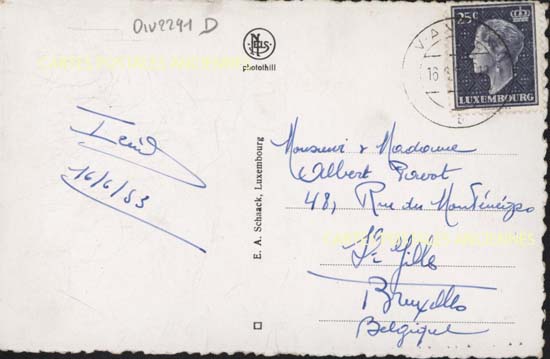 DIV2291 D
NELS
photothill
CARTES POSTALES ANCIENNES
25c
LUXEMBOURG
VIAN
16
16/6/53
E. A. Schaack, Luxembourg
Monsieur & Madame
Albert
48, Rue du Monténégro
CARTES POSTALES ANCIENNES
St Gilles
Bruxelles
Belgique